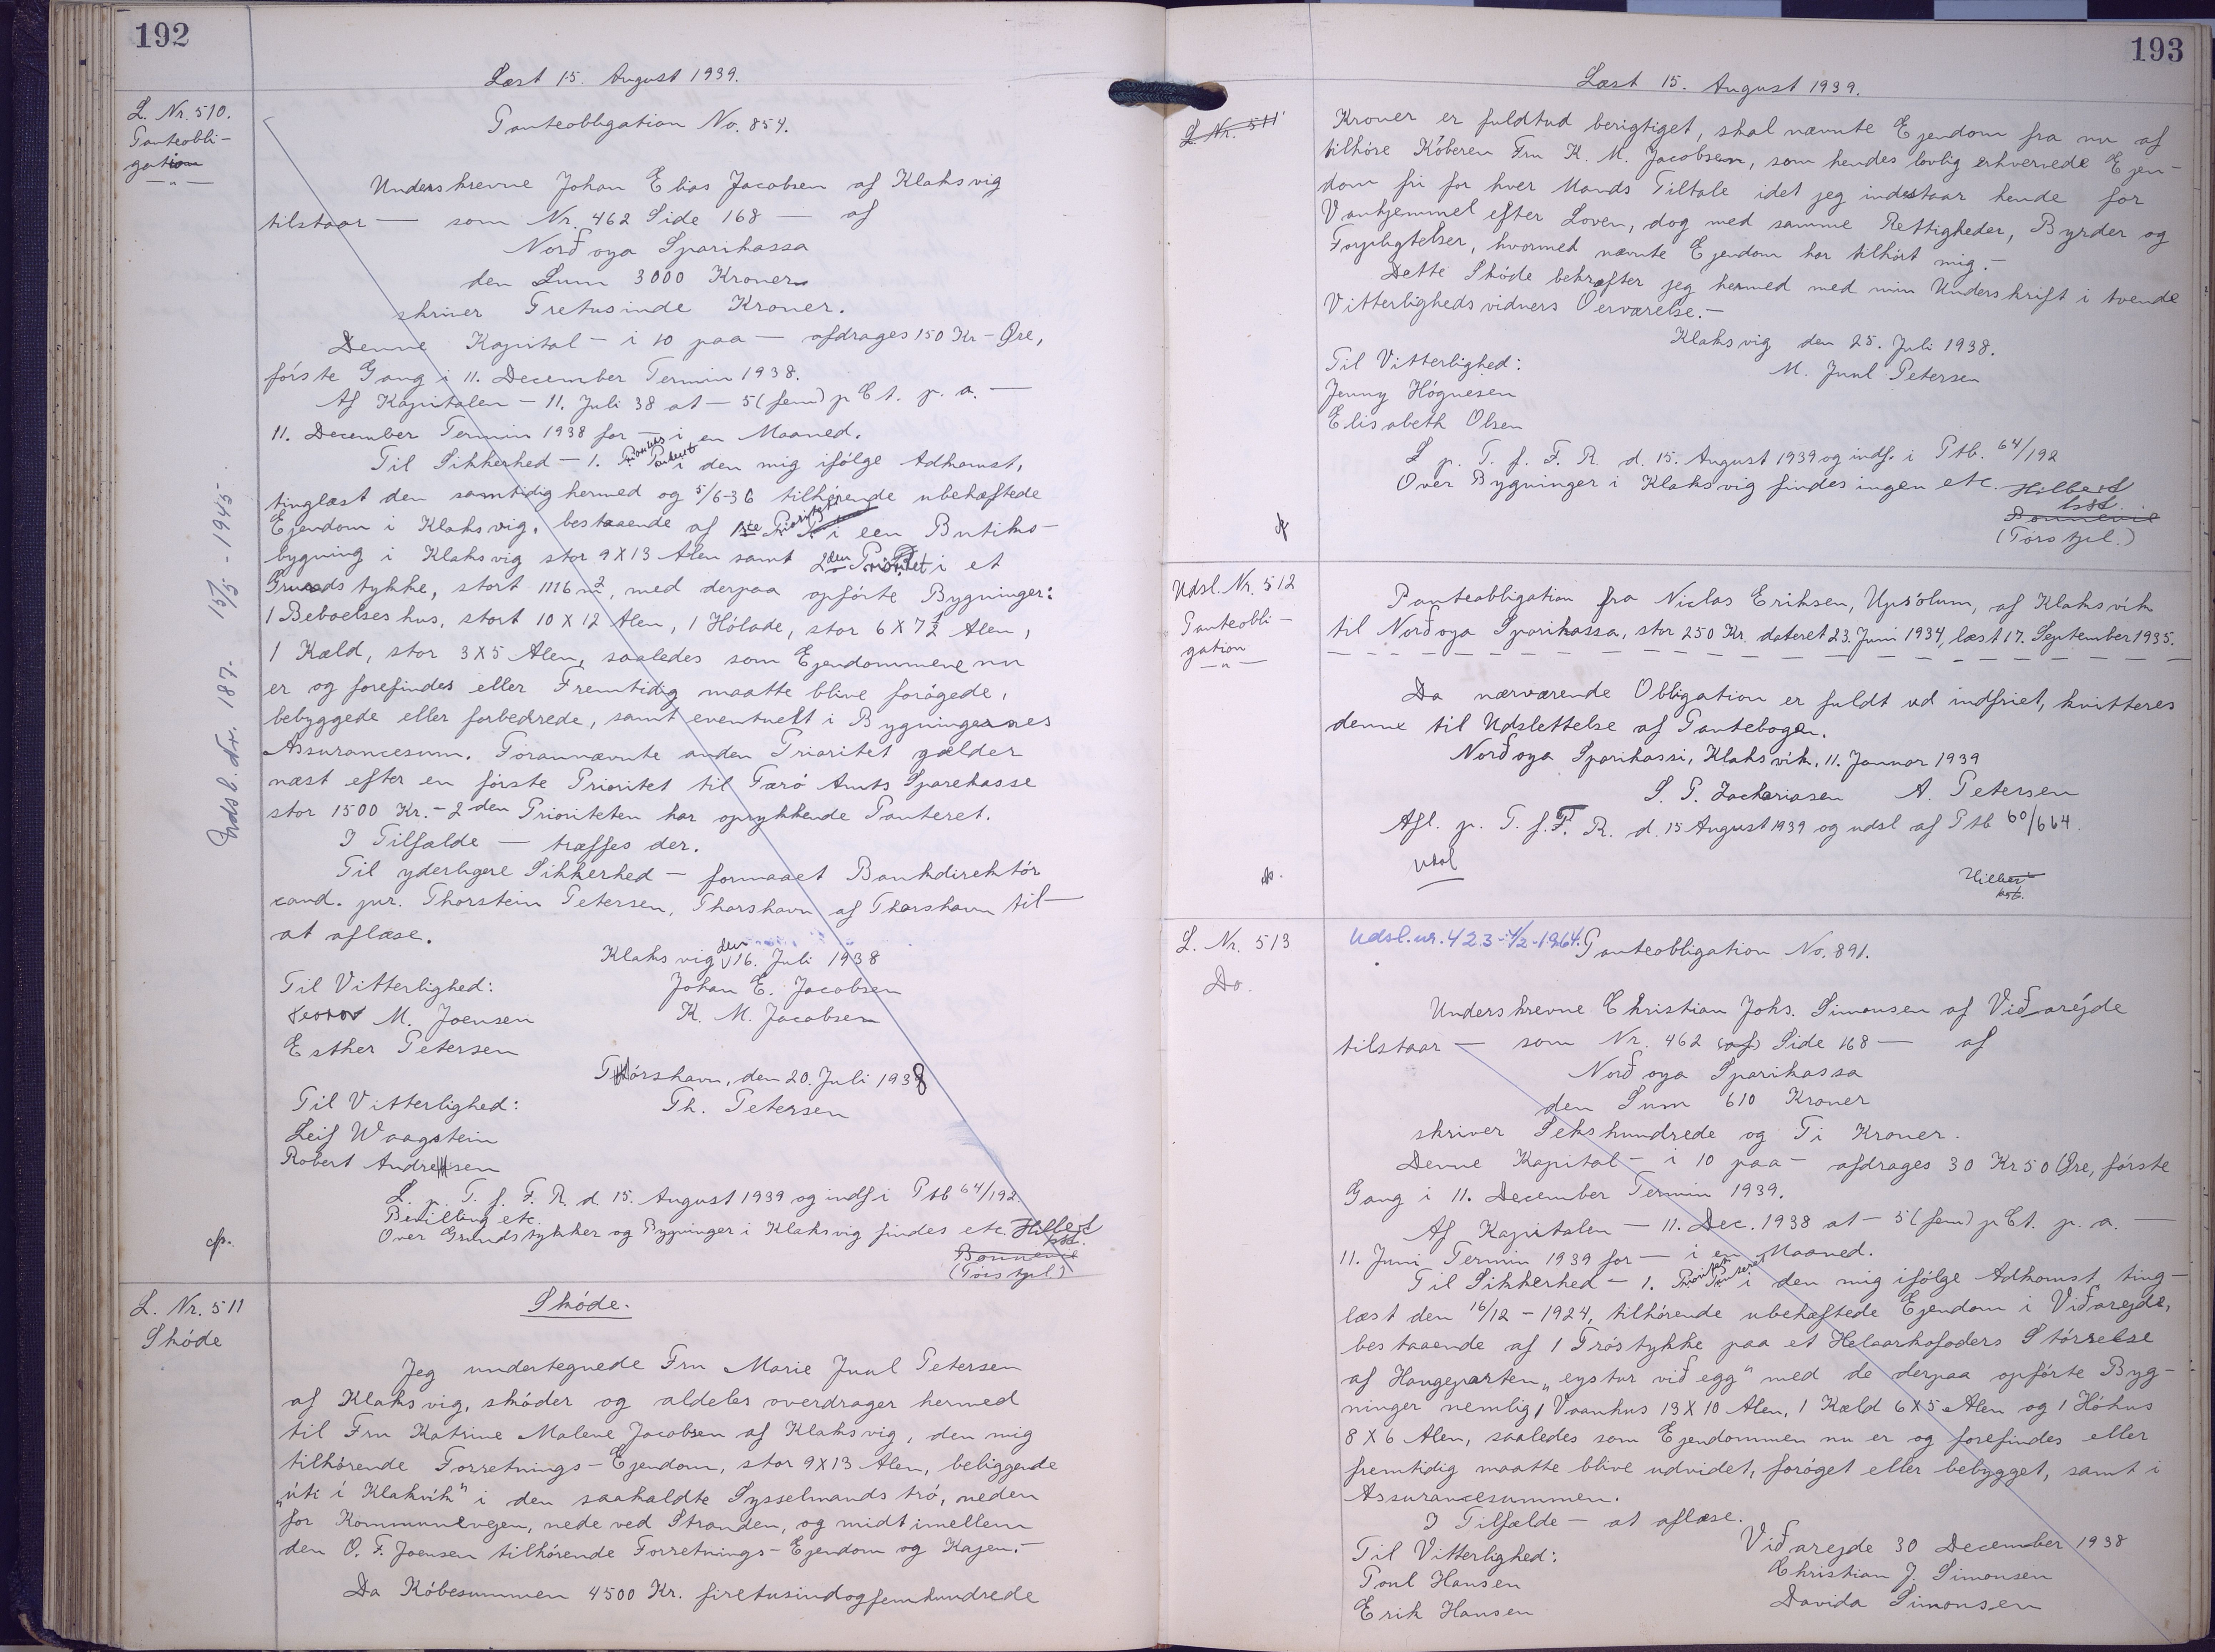 192
Læst 15. August 1939.
L. Nr. 510.
Panteobli-
gation
Panteobligation No. 854.
Underskrevne Johan Elias Jacobsen af Klaksvig
tilstaar — som Nr. 462 Side 168 — af
Norðoya Sparikassa
den Sum 3000 Kroner
skriver Tretusinde Kroner.
Denne Kapital – i 10 paa – afdrages 150 Kr – Øre,
fórste Gang i 11. December Termin 1938.
Af Kapitalen – 11. Juli 38 at – 5 (fem) pCt. p. a. —
11. December Termin 1938 for – i en Maaned.
Til Sikkerhed – 1. Prioritets Panteret i den mig ifólge Adkomst,
tinglæst den samtidig hermed og 5/6-36 tilhórende ubehæftede
Ejendom i Klaksvig, bestaaende af 1ste Prioritet i een Butiks-
bygning i Klaksvig stor 9X13 Alen samt 2den Prioritet i et
Grundstykke, stort 1116 m2, med derpaa opfórte Bygninger:
1 Beboelseshus, stort 10 X 12 Alen, 1 Hólade, stor 6 X 7½ Alen,
1 Kæld, stor 3X5 Alen, saaledes som Ejendommene nu
er og forefindes eller Fremtidig maatte blive forógede,
bebyggede eller forbedrede, samt eventuelt i Bygningernes
Assurancesum. Forannævnte anden Prioritet gælder
næst efter en fórste Prioritet til Færó Amts Sparekasse
stor 1500 Kr. – 2den Prioriteten har oprykkende Panteret.
I Tilfælde — træffes der.
Til yderligere Sikkerhed – formaaet Bankdirektór
cand. jur. Thorstein Petersen, Thorshavn af Thorshavn til—
at aflæse.
Klaksvig den 16. Juli 1938
Til Vitterlighed: Johan E. Jacobsen
M. Joensen K. M. Jacobsen
Esther Petersen
Tórshavn, den 20. Juli 1938
Til Vitterlighed: Th. Petersen
Leif Waagstein
Robert Andreasen
L. p. T. f. F. R. d. 15. August 1939 og indf. i Ptb 64/192.
Bevilling etc.
Over Grundstykker og Bygninger i Klaksvig findes etc. Hilbert
kst.
Bonnevie
(Tórs tpl.)
Udsl. Nr. 187. 15/5 - 1945
L. Nr. 511
Skóde
Skóde.
Jeg undertegnede Fru Marie Juul Petersen
af Klaksvig, skóder og aldeles overdrager hermed
til Fru Katrine Malene Jacobsen af Klaksvig, den mig
tilhórende Forretnings-Ejendom, stor 9X13 Alen, beliggende
„úti í Klakvík" i den saakaldte Sysselmands tró, neden
for Kommunevejen, nede ved Stranden, og midt imellem
den O. F. Joensen tilhórende Forretnings-Ejendom og Kajen.–
Da Kóbesummen 4500 Kr. firetusindogfemhundrede
193
Læst 15. August 1939.
L. Nr. 511
Kroner er fuldtud berigtiget, skal nævnte Ejendom fra nu af
tilhóre Kóberen Fru K. M. Jacobsen, som hendes lovlig erhvervede Ejen-
dom fri for hver Mands Tiltale idet jeg indestaar hende for
Vanhjemmel efter Loven, dog med samme Rettigheder, Byrder og
Forpligtelser, hvormed nævnte Ejendom har tilhórt mig.–
Dette Skóde bekræfter jeg hermed med min Underskrift i tvende
Vitterlighedsvidners Overværelse.–
Klaksvig den 25. Juli 1938.
Til Vitterlighed: M. Juul Petersen
Jenny Hógnesen
Elisabeth Olsen
L p. T. f. F. R. d. 15. August 1939 og indf. i Ptb. 64/192
Over Bygninger i Klaksvig findes ingen etc. Hilbert
kst.
Bonnevie
(Tórs tpl.)
Udsl. Nr. 512
Panteobli-
gation
Panteobligation fra Niclas Eriksen, Upsólum, af Klaksvík
til Norðoya Sparikassa, stor 250 Kr. dateret 23. Juni 1934, læst 17. September 1935.
Da nærværende Obligation er fuldt ud indfriet, kvitteres
denne til Udslettelse af Pantebogen.
Norðoya Sparikassi, Klaksvík, 11. Januar 1939
S. P. Zachariasen A. Petersen
Afl. p. T. f. F. R. d. 15 August 1939 og udsl af Ptb 60/664.
Udsl
Hilbert
kst.
L. Nr. 513
Do.
Udsl. nr. 423-4/2-1964.
Panteobligation No. 891.
Underskrevne Christian Johs. Simonsen af Viðarejde
tilstaar — som Nr. 462 Side 168 — af
Norðoya Sparikassa
den Sum 610 Kroner
skriver Sekshundrede og Ti Kroner.
Denne Kapital – i 10 paa – afdrages 30 Kr 50 Øre, fórste
Gang i 11. December Termin 1939.
Af Kapitalen – 11. Dec. 1938 at – 5 (fem) pCt. p. a. —
11. Juni Termin 1939 for – i en Maaned.
Til Sikkerhed – 1. Prioritets Panteret i den mig ifólge Adkomst ting-
læst den 16/12 - 1924, tilhórende ubehæftede Ejendom i Viðarejde,
bestaaende af 1 Tróstykke paa et Helaarkofoders Stórrelse
af Haugeparten „eystur við egg" med de derpaa opfórte Byg-
ninger nemlig 1 Vaanhus 13 X 10 Alen, 1 Kæld 6X5 Alen og 1 Hóhus
8 X 6 Alen, saaledes som Ejendommen nu er og forefindes eller
fremtidig maatte blive udvidet, foróget eller bebygget, samt i
Assurancesummen.
I Tilfælde – at aflæse.
Viðarejde 30 December 1938
Til Vitterlighed: Christian J. Simonsen
Poul Hansen Davida Simonsen
Erik Hansen